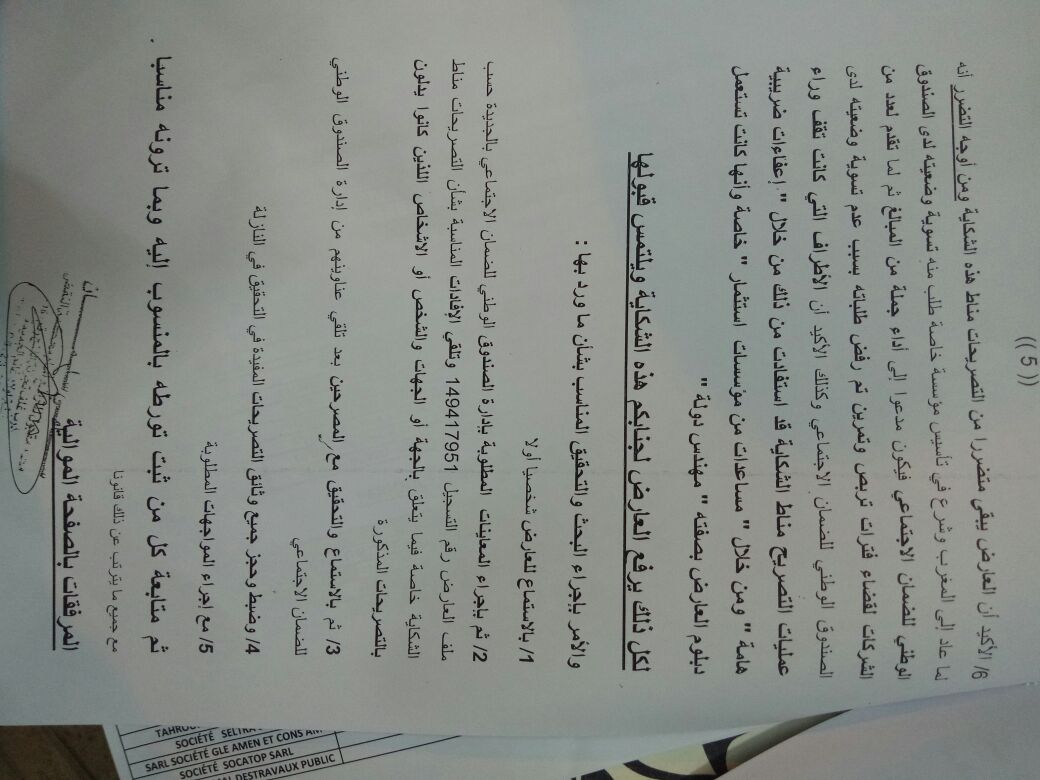 (( 5 ))
6/ الأكيد أن العارض يبقى متضررا من التصريحات مناط هذه الشكاية ومن أوجه التضرر أنه
لما عاد إلى المغرب وشرع في تأسيس مؤسسة خاصة طلب منه تسوية وضعيته لدى الصندوق
الوطني للضمان الاجتماعي فيكون مدعوا إلى أداء جملة من المبالغ ثم لما تقدم لعدد من
الشركات لقضاء فترات تربص وتمرين تم رفض طلباته بسبب عدم تسوية وضعيته لدى
الصندوق الوطني للضمان الاجتماعي وكذلك الأكيد أن الأطراف التي كانت تقف وراء
عمليات التصريح مناط الشكاية قد استفادت من ذلك من خلال " إعفاءات ضريبية
هامة " ومن خلال " مساعدات من مؤسسات استثمار " خاصة وأنها كانت تستعمل
دبلوم العارض بصفته " مهندس دولة "
لكل ذلك يرفع العارض لجنابكم هذه الشكاية ويلتمس قبولها
والأمر بإجراء البحث والتحقيق المناسب بشأن ما ورد بها :
1/ بالاستماع للعارض شخصيا أولا
2/ ثم بإجراء المعاينات المطلوبة بإدارة الصندوق الوطني للضمان الاجتماعي بالجديدة حسب
ملف العارض رقم التسجيل 149417951 وتلقي الإفادات المناسبة بشأن التصريحات مناط
الشكاية خاصة فيما يتعلق بالجهة أو الجهات والشخص أو الاشخاص اللذين كانوا يدلون
بالتصريحات المذكورة
3/ ثم بالاستماع والتحقيق مع المصرحين بعد تلقي عناوينهم من إدارة الصندوق الوطني
للضمان الاجتماعي
4/ وضبط وحجز جميع وثائق التصريحات المفيدة في التحقيق في النازلة
5/ مع إجراء المواجهات المطلوبة
ثم متابعة كل من ثبت تورطه بالمنسوب إليه وبما ترونه مناسبا .
مع جميع ما يترتب عن ذلك قانونا
المرفقات بالصفحة الموالية
SOCIÉTÉ GLE AMEN ET CONS
SARL SOCIÉTÉ SOCATOP SARL
DESTRAVAUX PUBLIC